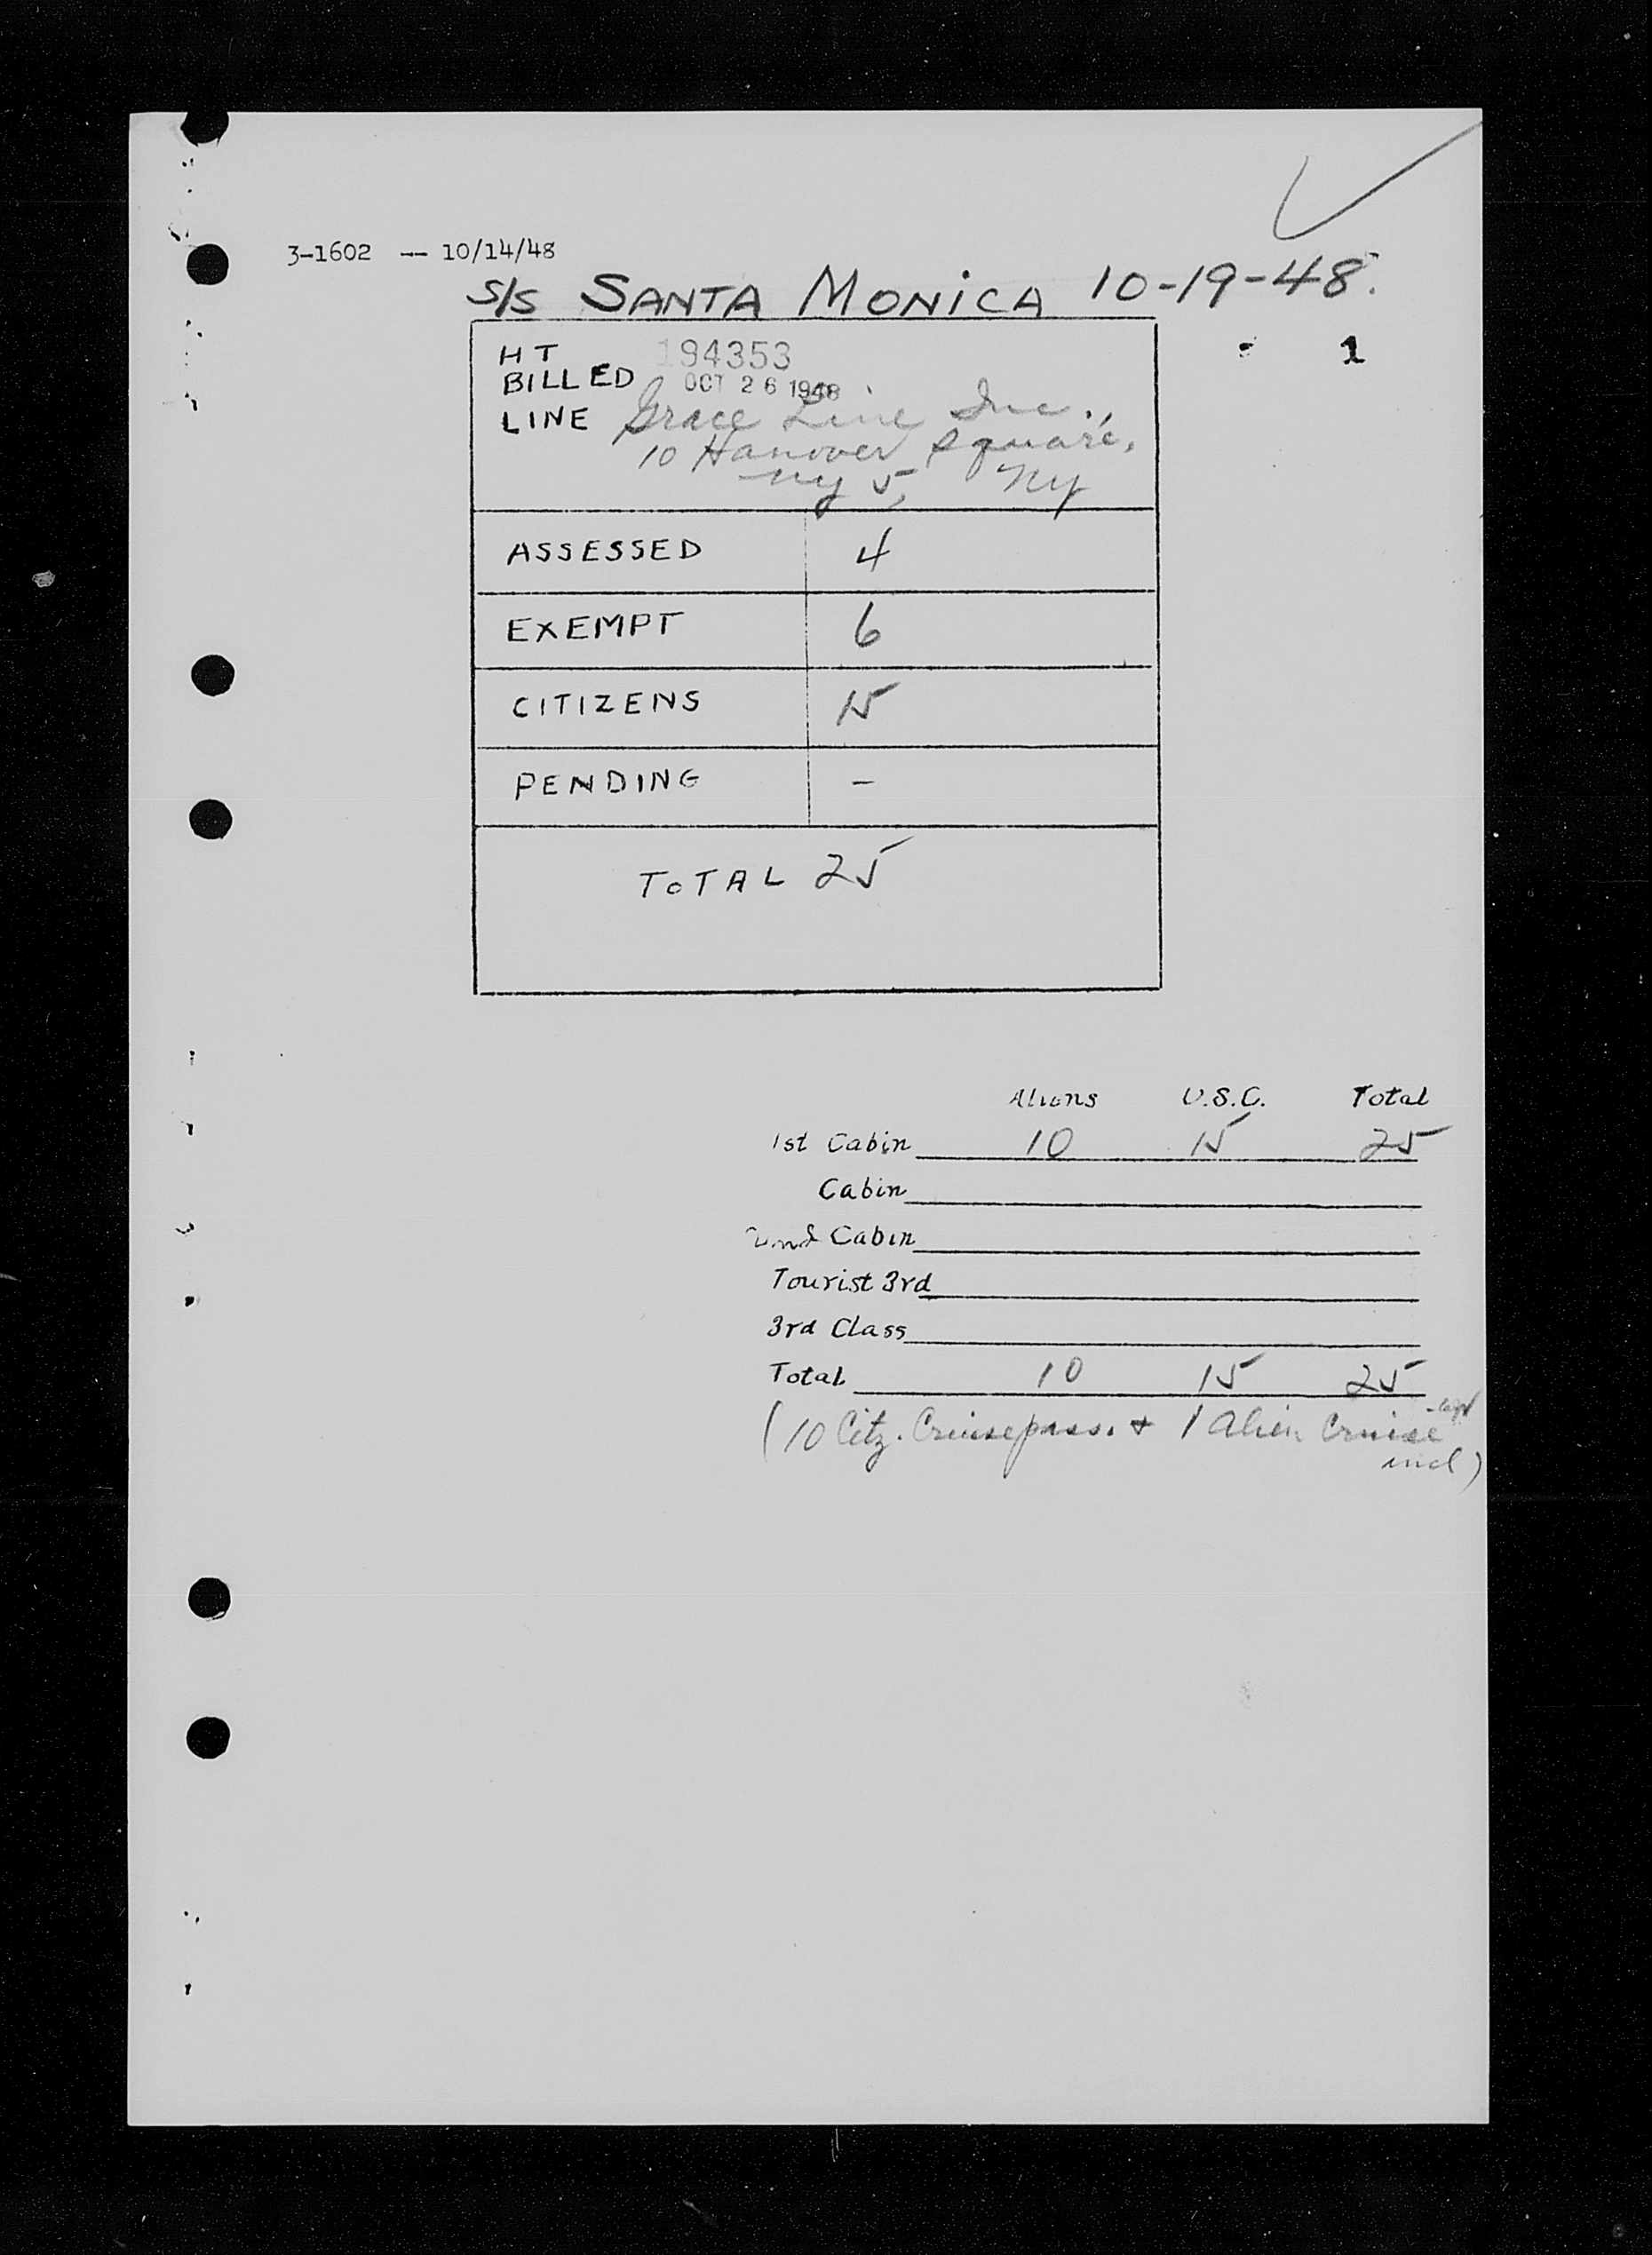 3-1602 -- 10/14/48
S/S SANTA MONICA 10-19-48.
1
HT 194353
BILLED OCT 26 1948
LINE Grace Line Inc.,
10 Hanover Square,
NY 5, NY
ASSESSED 4
EXEMPT 6
CITIZENS 15
PENDING –
TOTAL 25
Aliens U.S.C. Total
1st Cabin 10 15 25
Cabin
2nd Cabin
Tourist 3rd
3rd Class
Total 10 15 25
(10 Citz. Cruise pass. + 1 Alien Cruise
incl)